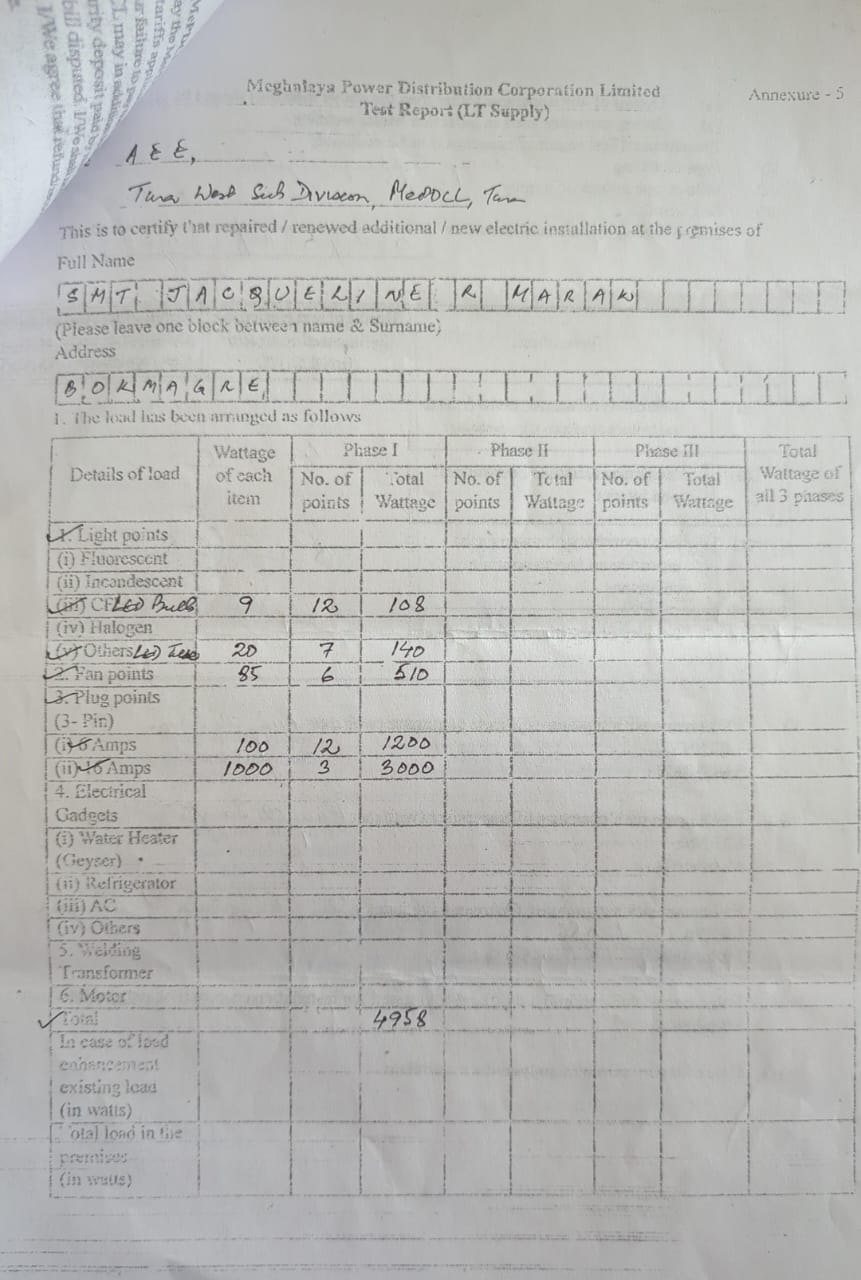 Meghalaya Power Distribution Corporation Limited
Annexure - 5
Test Report (LT Supply)
A E E,
Tura West Sub Division, MePDCL, Tura
This is to certify that repaired / renewed additional / new electric installation at the premises of
Full Name
SMT JACQUELINE R MARAK
(Please leave one block between name & Surname)
Address
BOKMAGRE
1. The load has been arranged as follows
Details of load | Wattage of each item | Phase I | Phase II | Phase III | Total Wattage of all 3 phases
No. of points | Total Wattage | No. of points | Total Wattage | No. of points | Total Wattage
1. Light points
(i) Fluorescent
(ii) Incandescent
(iii) CF LED Bulb 9 12 108
(iv) Halogen
(v) Others LED 20 7 140
2. Fan points 85 6 510
3. Plug points
(3- Pin)
(i) 5 Amps 100 12 1200
(ii) 16 Amps 1000 3 3000
4. Electrical
Gadgets
(i) Water Heater
(Geyser)
(ii) Refrigerator
(iii) AC
(iv) Others
5. Welding
Transformer
6. Motor
Total 4958
In case of load
enhancement
existing load
(in watts)
Total load in the
premises
(in watts)